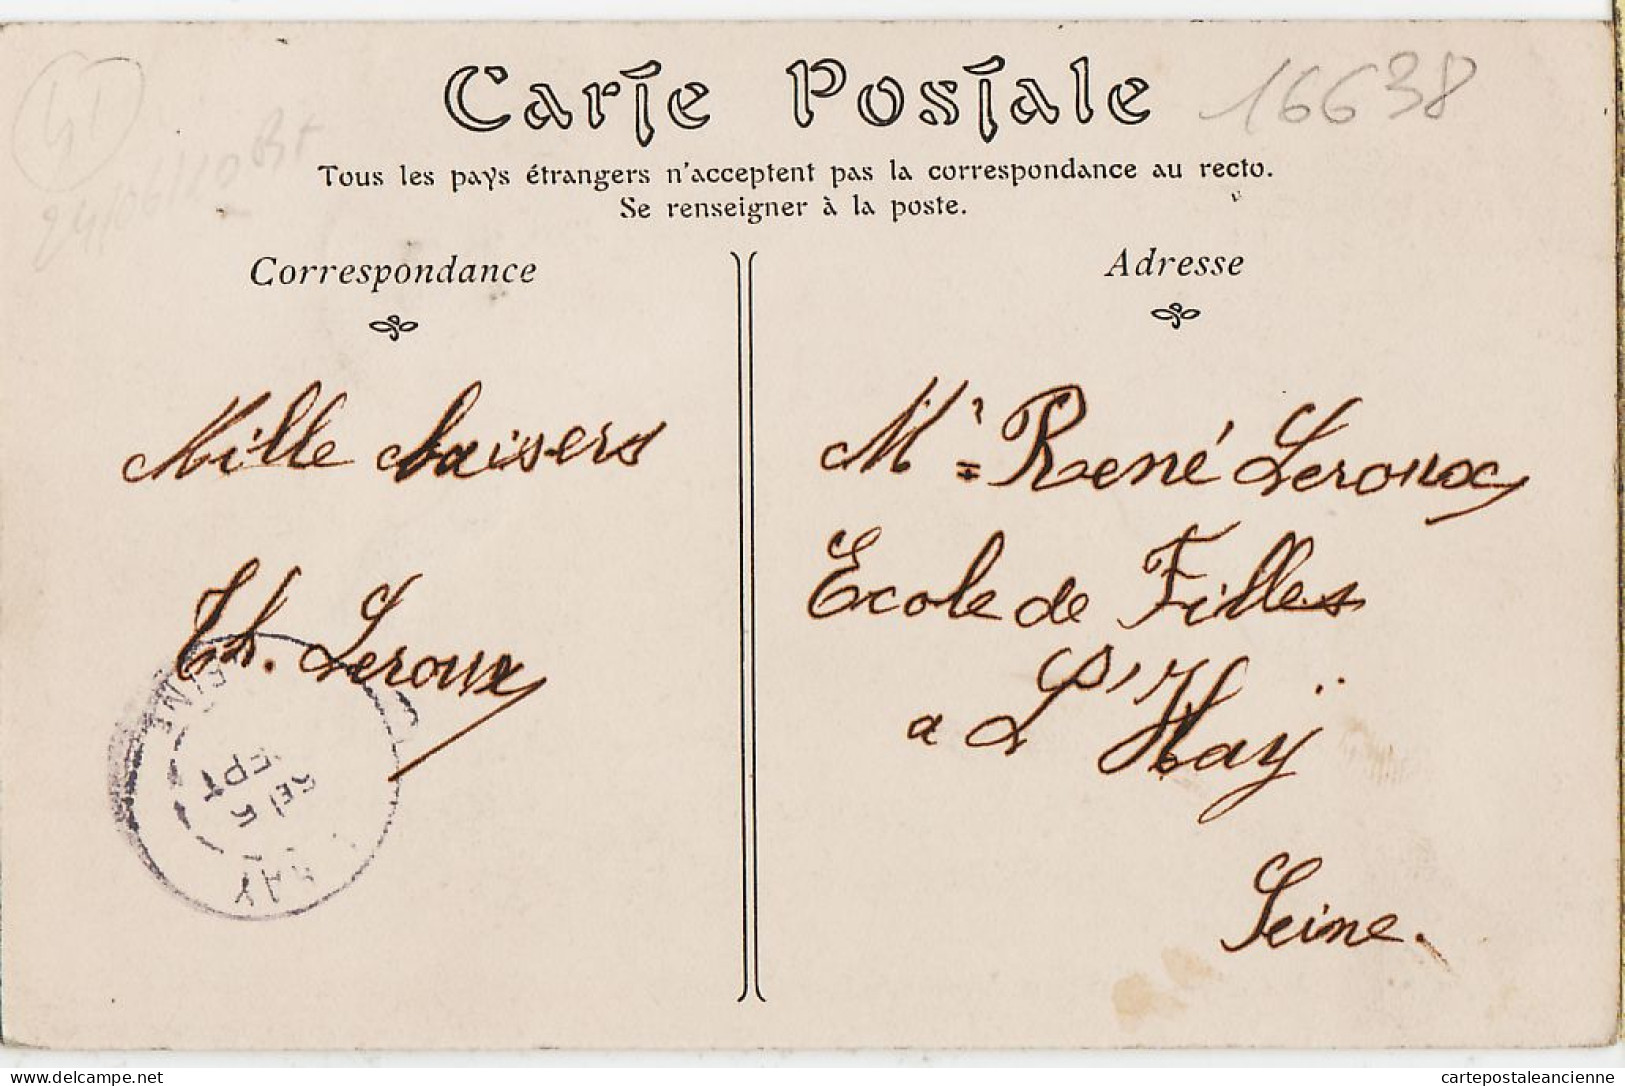 Carte Postale
16638
41
Tous les pays étrangers n'acceptent pas la correspondance au recto.
Se renseigner à la poste.
Correspondance
Mille baisers
Th. Leroux
SEINE
SEPT
5
HAY
Adresse
Mr René Leroux
Ecole de Filles
a L'Haÿ
Seine.
delcampe.net
cartepostaleancienne